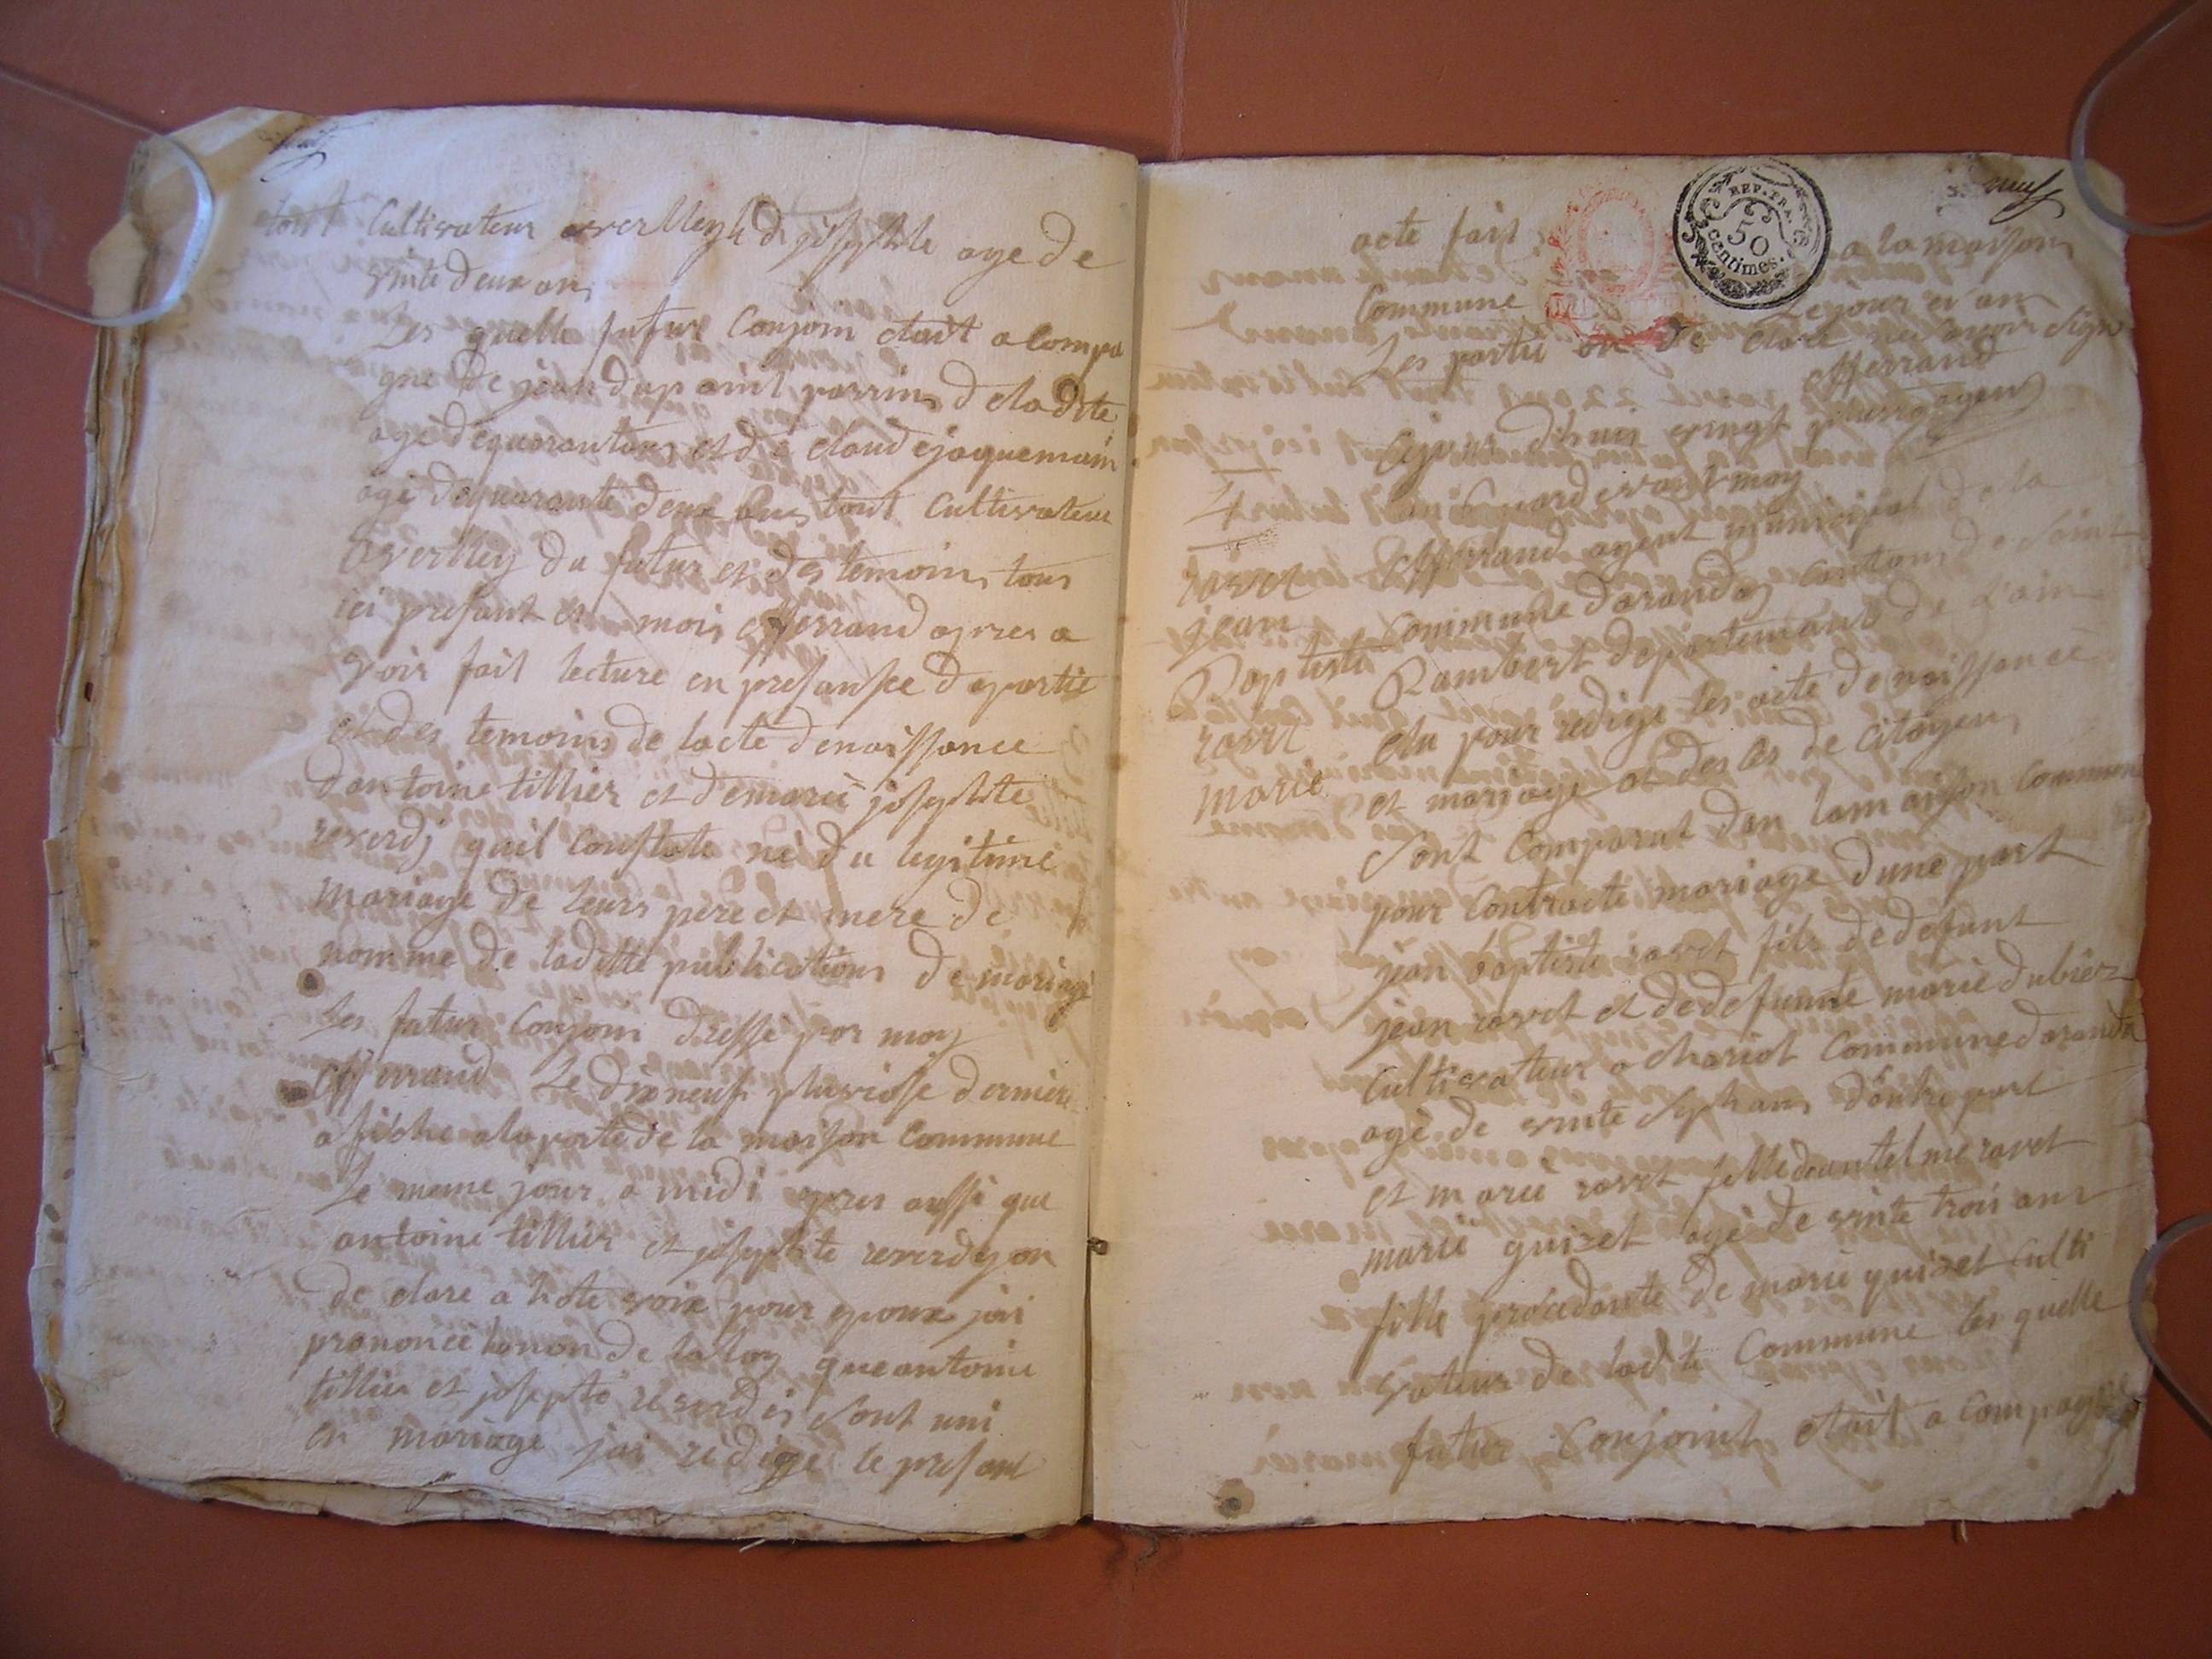 tout Cultivateur averlley la d josephte age de
vinte deux ans
Les quelle futur Conjoin etait a compa
gne de jean dupoint parrin de ladite
age de quarantans et de claude jaquemain
age de quarante deux ans tout Cultivateur
averlley du futur et des temoins tous
ici presant et mois Efferrand apres a
voir fait lecture en presansse de partie
et des temoins de lacte denaissance
dantoine tillier et demarie josephte
reverdy quil Constate né du legitime
mariage de leurs pere et mere de
nomme de laditte publications de mariage
Les futur Conjoin dressé par moy
Efferrand Le dixneuf pluviosse dernier
afiché alaporte de la maison Commune
Le meme jour a midi apres aussi que
antoine tillier et josephte reverdy on
de clare a hote voix pour epoux jai
prononcé aunon de la loy que antoine
tillier et josephte reverdis sont uni
en mariage jai redige le presant
neuf
REP. FRA.
50
centimes.
acte fait a la maison
Commune Le jour et an
Les partie on de clare ne savoir signe
Efferrand
agent
Cejour dhui vingt pluviosse
an 6 pard evant moy
Efferrand agent municipal de la
Commune darandas Canton de Saint
Rambert departemant de L'ain
elu pour redige les acte de naissance
et mariage et des ces de citoyen
4
ravet
jean
Baptiste
ravet
marie
Sont Comparut dan lamaison Commune
pour Contracte mariage dune part
jean baptiste ravet fils dedefunt
jean ravet et dedefunte marie dubiez
Cultivateur a chariot Commune daranda
agé de vinte sept ans dautre part
et marie ravet fille deantelme ravet
marie guizet agé de vinte trois ans
fille procedante de marie guizet Culti
vateur de ladite Commune les quelle
futur Conjoint etait a compagne